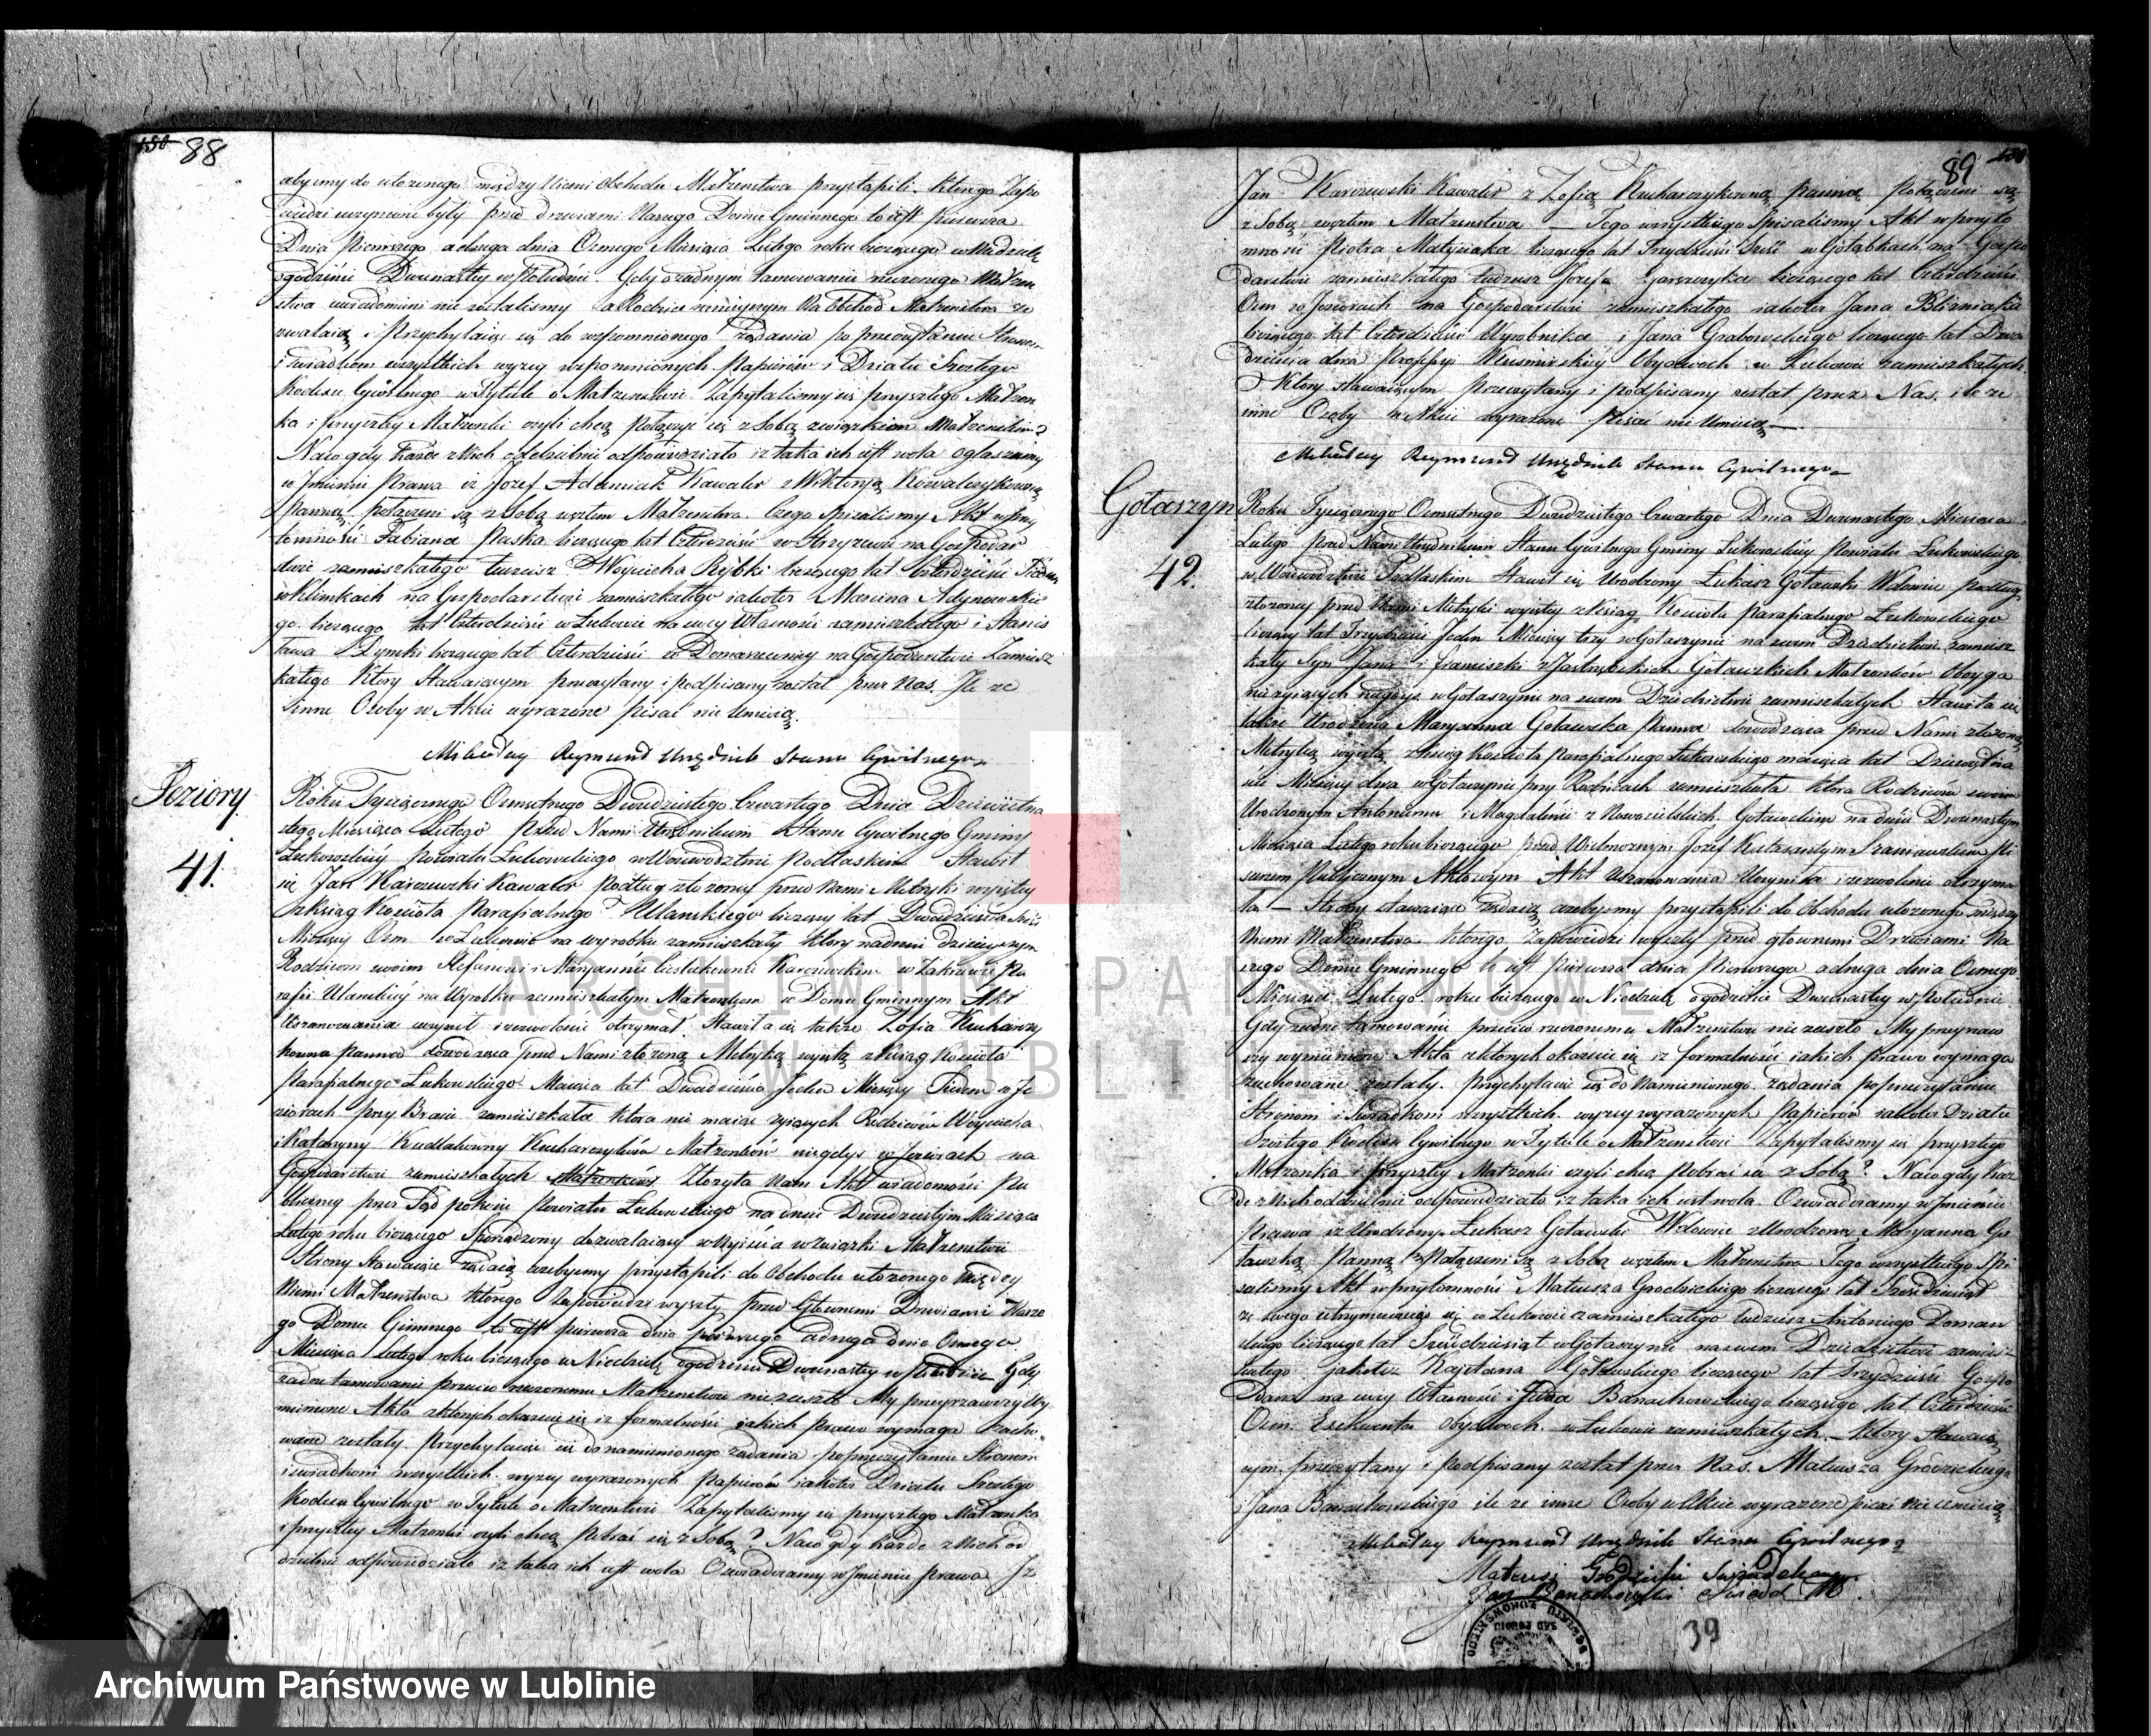 88
abyśmy do ułożonego między Niemi Obchodu Małżeństwa przystąpili. którego Zapo
wiedzi uczynione były przed drzwiami Naszego Domu Gminnego to iest pierwsza
Dnia Pierwszego a druga dnia Osmego Miesiąca Lutego roku bieżącego w Niedzielę
o godzinie Dwunastey w Południe. Gdy o żadnym tamowaniu rzeczonego Małżeń
stwa uwiadomieni nie zostaliśmy a Rodzice ninieyszym na Obchód Małżeństwa ze
zwalaią i Przychylaiąc się do wspomnionego żądania po przeczytaniu Stronom
i świadkom wszystkich wyżey wspomnionych Papierów i Działu Szostego
Kodexu Cywilnego w Tytule o Małżeństwie Zapytaliśmy się przyszłego Małżon
ka i przyszłey Małżonki czyli chcą połączyć się z Sobą związkiem Małżeńskim?
Na co gdy każde z Nich oddzielnie odpowiedziało iż taka ich iest wola ogłaszamy
w Imieniu Prawa iż Jozef Adamiak Kawaler z Wiktoryą Kowalczykowną
Panną połączeni są z Sobą węzłem Małżeństwa. Czego Spisaliśmy Akt w przy
tomności Fabiana Paska liczącego lat Czterdzieści w Strzyżewie na Gospodar
stwie zamieszkałego tudzież Woyciecha Rybki liczącego lat Czterdzieści
w Klimkach na Gospodarstwie zamieszkałego iakoteż Marcina
go liczącego lat Czterdzieści w Łukowie na swey Własności zamieszkałego i Stanis
ława Dymki liczącego lat Czterdzieści w Domaszewnicy na Gospodarstwie Zamiesz
kałego Który Stawaiącym przeczytany i podpisany został przez Nas. Ile że
inne Osoby w Akcie wyrażone pisać nie Umieią.
Reymund Urzędnik Stanu Cywilnego
Jeziory
41.
Roku Tysiącznego Osmsetnego Dwudziestego Czwartego Dnia Dziewiętna
stego Miesiąca Lutego Przed Nami Urzędnikiem Stanu Cywilnego Gminy
Łukowskiey Powiatu Łukowskiego w Woiewodztwie Podlaskim Stawił
się Jan Karczewski Kawaler podług złożoney przed Nami Metryki wyiętey
z Ksiąg Kościoła Parafialnego Ulańskiego liczący lat Dwadzieścia
Miesięcy Osm w Łukowie na wyrobku zamieszkały który na dniu dzisieyszym
Rodzicom swoim Stefanowi i Maryannie Karczewskim w Zakrzewie Pa
rafii Ulańskiey na Wyrobku zamieszkałym Małżonkom w Domu Gminnym Akt
Uszanowania uczynił i zezwolenie otrzymał Stawiła się także Zofia Kucharczy
kowna Panna dowodząca przed Nami złożoną Metryką wyiętą z Ksiąg Kościoła
Parafialnego Łukowskiego Maiąca lat Dwadzieścia Jeden Miesięcy Siedem w Je
ziorach przy Bracie zamieszkała która nie maiąc żyiących Rodziców Woyciecha
i Katarzyny Kudlakowny Kucharczyków Małżonków niegdyś w Jeziorach na
Gospodarstwie zamieszkałych Złożyła Nam Akt wiadomości Pu
bliczney przez Sąd pokoiu Powiatu Łukowskiego na dniu Dwudziestym Miesiąca
Lutego roku bieżącego Sporządzony dozwalaiący weyścia w związki Małżeństwa
Strony Stawaiące żądaią ażebyśmy przystąpili do Obchodu ułożonego między
Niemi Małżeństwa którego Zapowiedzi wyszły przed Głównemi Drzwiami Nasze
go Domu Gminnego to iest pierwsza dnia pierwszego a druga dnia Osmego
Miesiąca Lutego roku bieżącego w Niedzielę o godzinie Dwunastey w Południe Gdy
żadne tamowanie przeciw rzeczonemu Małżeństwu nie zaszło My przeyrzawszy Wy
mienione Akta z których okazuie się iż formalności iakich prawo wymaga zacho
wane zostały. Przychylaiąc się do namienionego żądania po przeczytaniu Stronom
i świadkom wszystkich wyżey wyrażonych Papierów iakoteż Działu Szostego
Kodexu Cywilnego w Tytule o Małżeństwie Zapytaliśmy się przyszłego Małżonka
i przyszłey Małżonki czyli chcą Pobrać się z Sobą? Na co gdy każde z Nich od
dzielnie odpowiedziało iż taka ich iest wola Oświadczamy w Imieniu prawa Iż
89
Jan Karczewski Kawaler z Zofią Kucharczykowną Panną Połączeni są
z Sobą węzłem Małżeństwa — Tego wszystkiego Spisaliśmy Akt w przyto
mności Piotra Matysiaka liczącego lat Trzydzieści Sześć w Gołąbkach na Gospo
darstwie zamieszkałego tudzież Jozefa liczącego lat Czterdzieści
Osm w Jeziorach na Gospodarstwie zamieszkałego iakoteż Jana Bliźniaka
liczącego lat Czterdzieści Wyrobnika i Jana Grabowskiego liczącego lat Dwa
dzieścia dwa Professyi Obydwóch w Łukowie zamieszkałych
Który stawaiącym przeczytany i podpisany został przez Nas. ile że
inne Osoby w Akcie wyrażone Pisać nie Umieią —
Reymund Urzędnik Stanu Cywilnego
Gołaszyn
42.
Roku Tysiącznego Osmsetnego Dwudziestego Czwartego Dnia Dwunastego Miesiąca
Lutego przed Nami Urzędnikiem Stanu Cywilnego Gminy Łukowskiey Powiatu Łukowskiego
w Woiewodztwie Podlaskim Stawił się Urodzony Łukasz Goławski Wdowiec podług
złożoney przed Nami Metryki wyiętey z Ksiąg Kościoła Parafialnego Łukowskiego
liczący lat Trzydzieści Jeden Miesięcy trzy w Gołaszynie na swem Dziedzictwie zamiesz
kały Syn Jana i Franciszki z Jastrzębskich Goławskich Małżonków Oboyga
nieżyiących niegdyś w Gołaszynie na swem Dziedzictwie zamieszkałych Stawiła się
także Urodzona Maryanna Goławska Panna dowodząca przed Nami złożoną
Metryką wyiętą z Ksiąg Kościoła Parafialnego Łukowskiego maiąca lat Dziewiętna
ście Miesięcy dwa w Gołaszynie przy Rodzicach zamieszkała która Rodzicom swoim
Urodzonym Antoniemu i Magdalenie z Nowosielskich Goławskim na dniu Dwunastym
Miesiąca Lutego roku bieżącego przed Wielmożnym Jozef Kalasantym Szaniawskim Pi
sarzem Publicznym Aktowym Akt Uszanowania Uczyniła i zezwolenie otrzyma
ła — Strony stawaiące żądaią ażebyśmy przystąpili do Obchodu ułożonego między
Niemi Małżeństwa którego Zapowiedzi wyszły przed głownemi Drzwiami Na
szego Domu Gminnego to iest pierwsza dnia Pierwszego a druga dnia Osmego
Miesiąca Lutego roku bieżącego w Niedzielę o godzinie Dwunastey w Południe
Gdy żadne tamowanie przeciw rzeczonemu Małżeństwu nie zaszło My przeyrzaw
szy wymienione Akta z których okazuie się iż formalności iakich prawo wymaga
zachowane zostały. Przychylaiąc się do Namienionego żądania po przeczytaniu
Stronom i Świadkom wszystkich wyżey wyrażonych Papierów iakoteż Działu
Szostego Kodexu Cywilnego w Tytule o Małżeństwie Zapytaliśmy się przyszłego
Małżonka i przyszłey Małżonki czyli chcą Pobrać się z Sobą? Na co gdy każ
de z Nich oddzielnie odpowiedziało iż taka ich iest wola. Oświadczamy w Imieniu
Prawa iż Urodzony Łukasz Goławski Wdowiec z Urodzoną Maryanną Go
ławską Panną Połączeni są z Sobą węzłem Małżeństwa Tego wszystkiego Spi
saliśmy Akt w przytomności Mateusza Grodzickiego liczącego lat Sześćdziesiąt
ze swego utrzymuiącego się w Łukowie zamieszkałego tudzież Antoniego Doman
skiego liczącego lat Sześćdziesiąt w Gołaszynie na swem Dziedzictwie zamiesz
kałego jakoteż Kajetana liczącego lat trzydzieści Gospo
darza na swey Własności i Jana Banachowskiego liczącego lat Czterdzieści
Osm Exekwenta Obydwóch w Łukowie zamieszkałych. — Który Stawaią
cym przeczytany i podpisany został przez Nas. Mateusza Grodzickiego
i Jana Banachowskiego ile że inne Osoby w Akcie wyrażone pisać nie umieią
Reymund Urzędnik Stanu Cywilnego
Mateusz Grodzicki Świadek
Jan Banachowski Świadek
39
ARCHIWUM PAŃSTWOWE
W LUBLINIE
Archiwum Państwowe w Lublinie